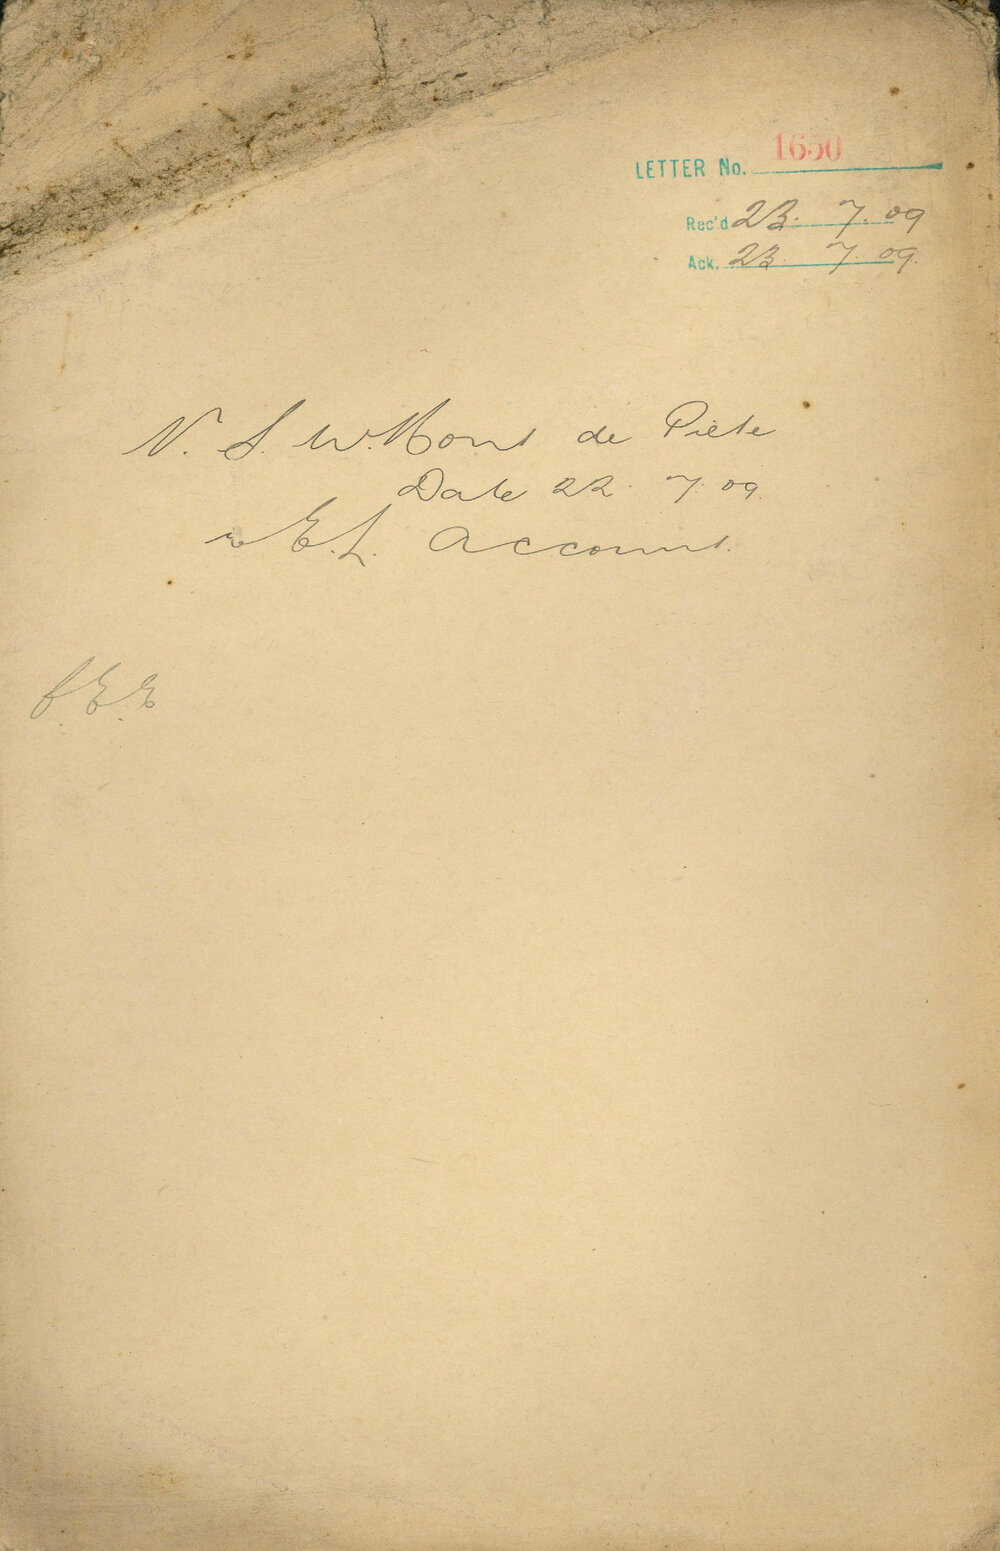 LETTER No. 1650
Rec'd 23. 7. 09
Ack. 23. 7. 09.
N. S. W. Mont de Piete
Date 22. 7. 09.
re E. L. Account.